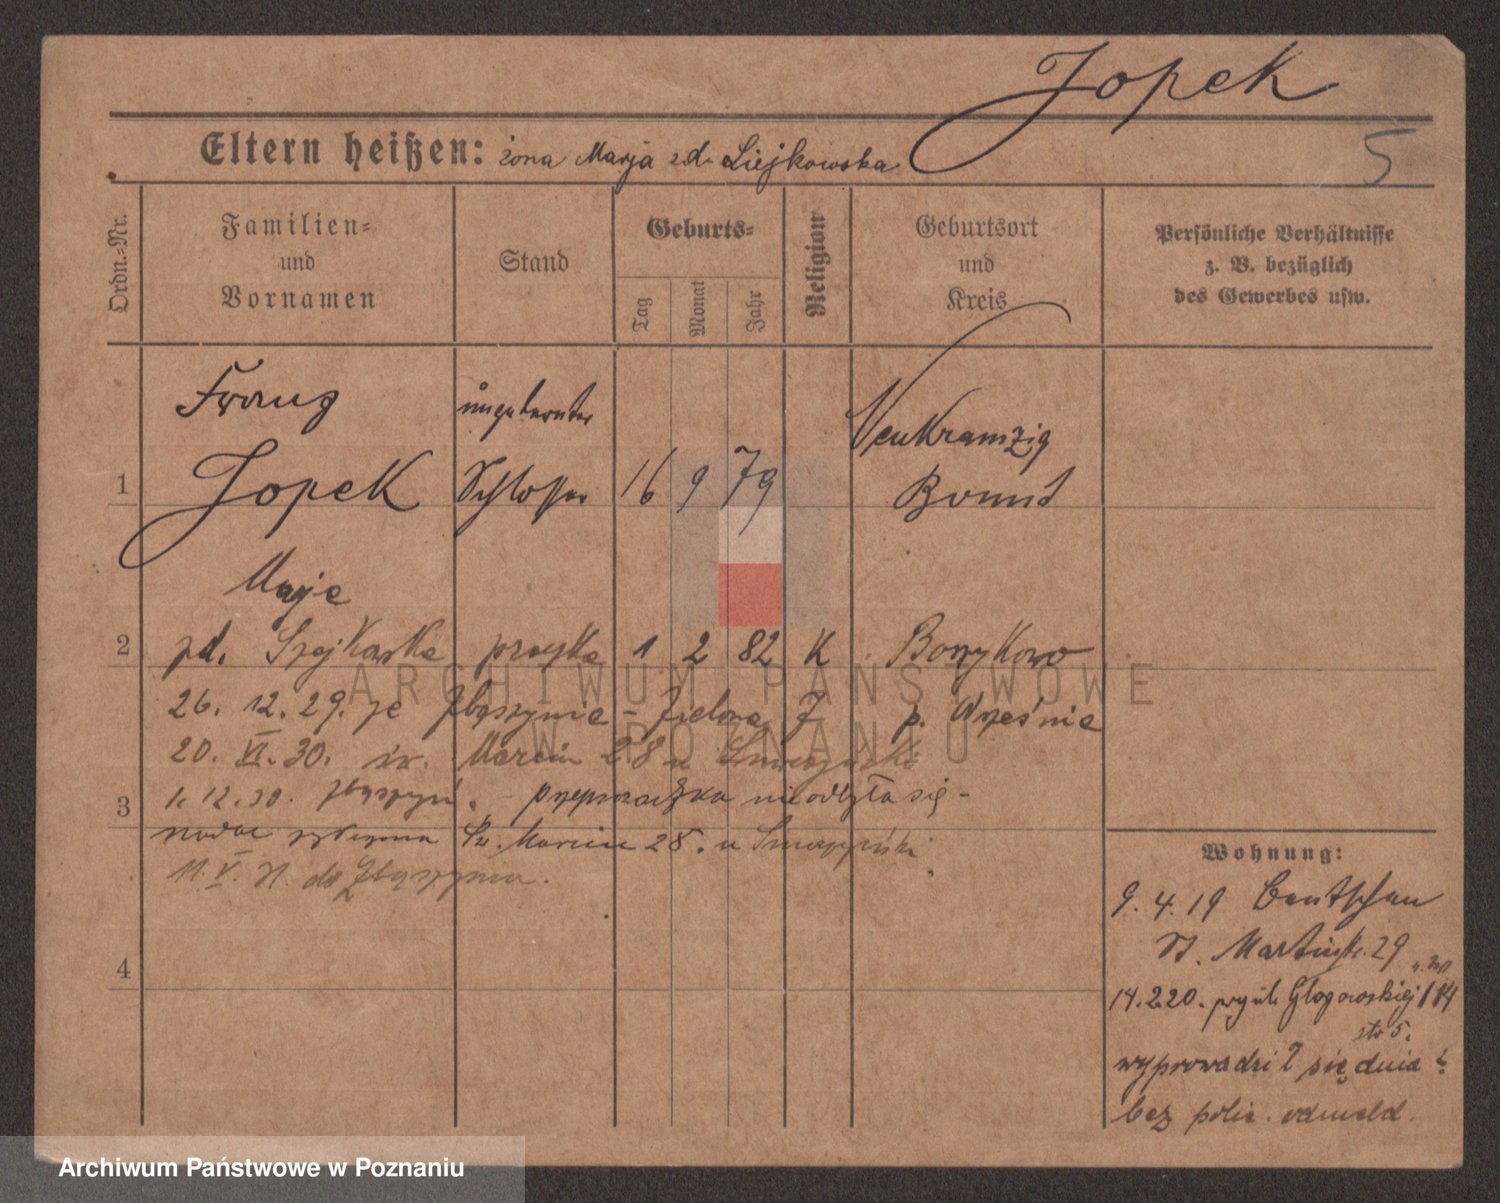 Jopek
5
Eltern heißen: żona Marja zd. Liejkowska
Ordn.-Nr.
Familien-
und
Vornamen
Stand
Geburts-
Tag
Monat
Jahr
Religion
Geburtsort
und
Kreis
Persönliche Verhältnisse
z. B. bezüglich
des Gewerbes usw.
Franz
Jopek
Schlosser
1
16 9 79
Neukramzig
Bomst
Marje
2
zd. 1 2 82 K
26. 12. 29. ze Zbąszynia - Zielona 7
p. Wrześnie
20. VI. 30. św. Marcin 28 u
3
1. 12. 30. Zbąszyń. - przeprowadzka nie odbyła się -
nadal Św. Marcin 28. u
11. V. 31. do Zbąszynia.
4
Wohnung:
9. 4. 19 Bentschen
St. Martinstr. 29
14. 2 20. przy ul. Głogowskiej 114
str 5.
wyprowadził się dnia ?
bez polic. odmeld.
ARCHIWUM PAŃSTWOWE
W POZNANIU
Archiwum Państwowe w Poznaniu